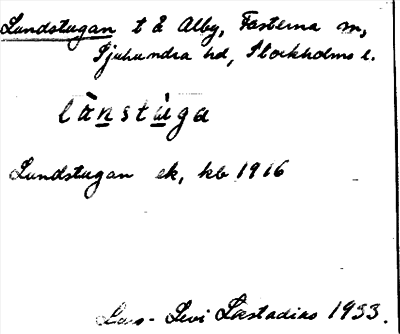 Lundstugan t Ö Alby, Fasterna sn,
Sjuhundra hd, Stockholms l.
lànstùga
Lundstugan ek, kb 1916
Lars-Levi Læstadius 1933.